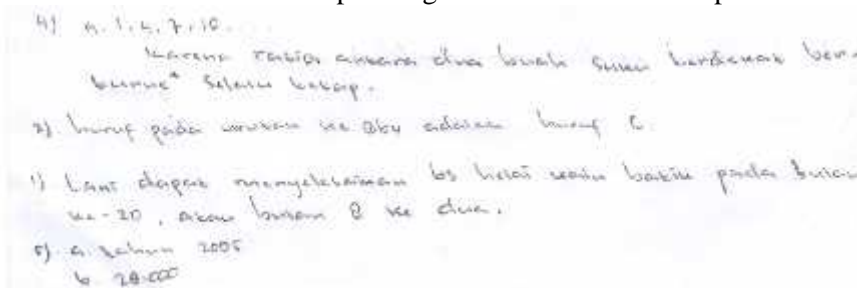 4) a. 1, 4, 7, 10. ...
Karena rasio antara dua buah suku berdekat ber-
turut" selalu tetap.
2). huruf pada urutan ke 864 adalah huruf C.
1) Lani dapat menyelesaikan 63 helai kain batik pada bulan
ke-20, atau bulan 8 ke dua.
5). a. tahun 2005
b. 28.000